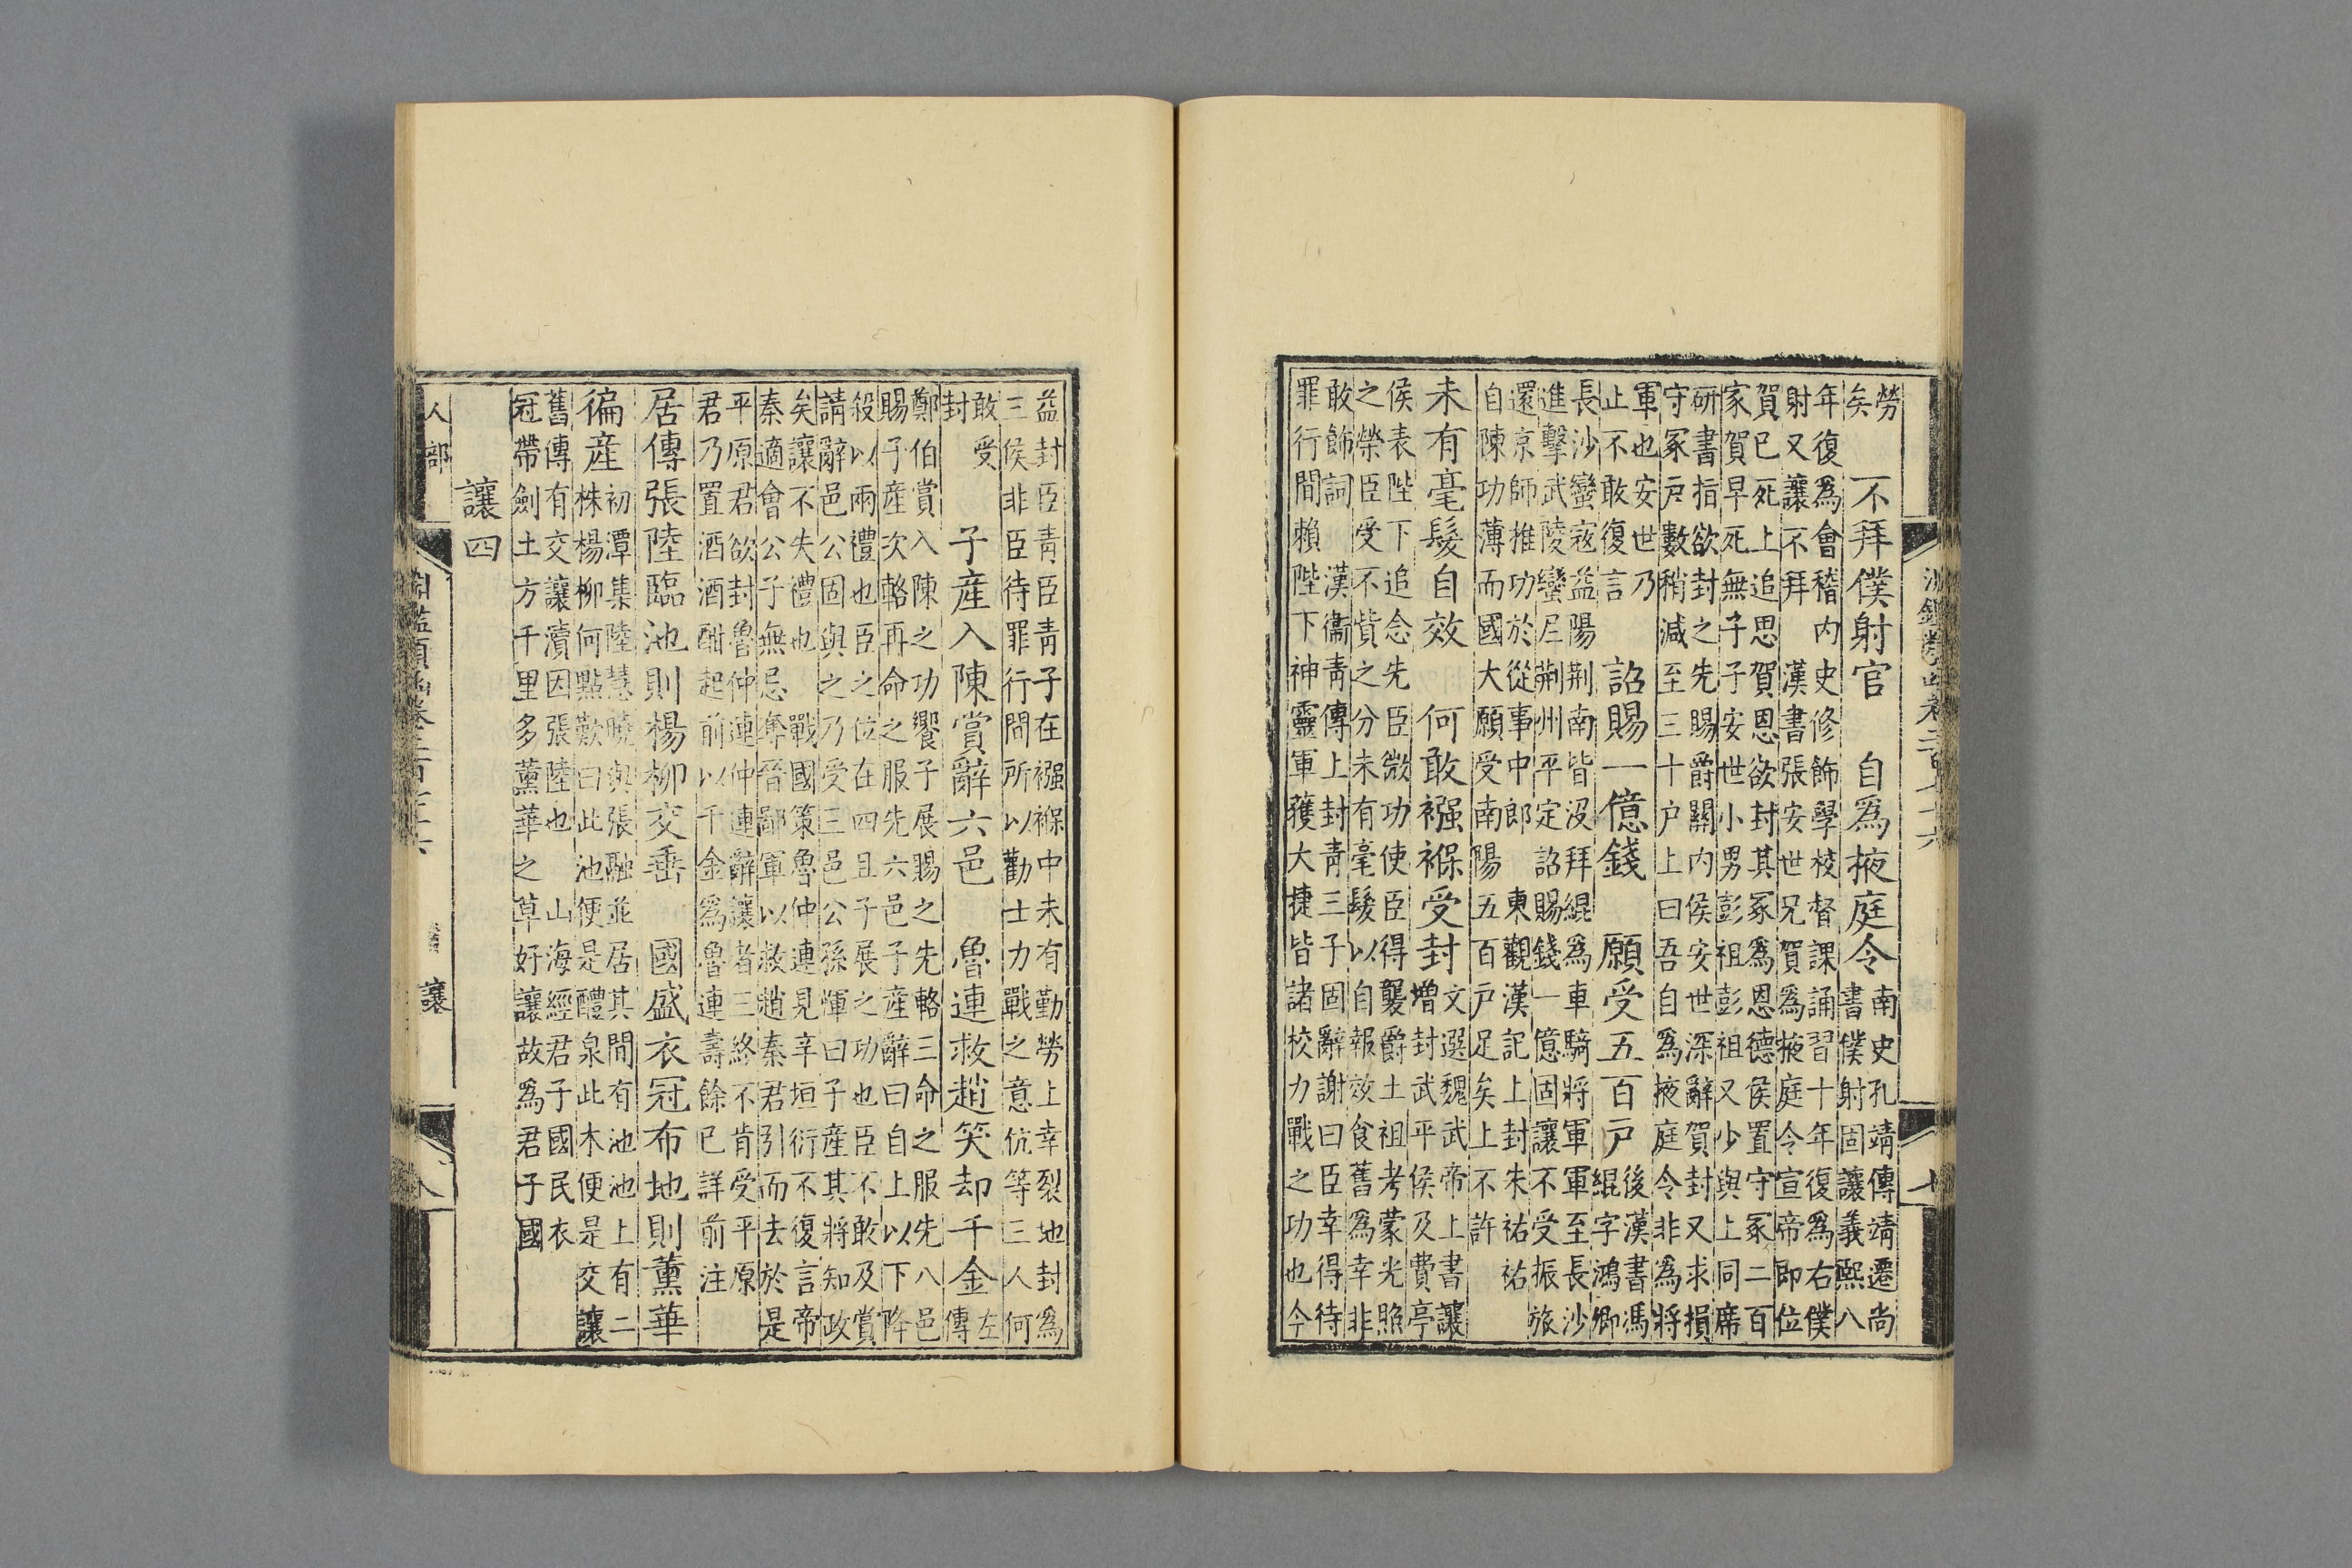 勞
矣
不拜僕射官　自爲掖庭令
南史孔靖傳靖遷尚
書僕射固讓義熙八
年復爲會稽内史修飾學校督課誦習十年復爲右僕
射又讓不拜　漢書張安世兄賀爲掖庭令宣帝即位
賀已死上追思賀恩欲封其冢爲恩德侯置守冢二百
家賀早死無子子安世小男彭祖彭祖又少與上同席
研書指欲封之先賜爵關内侯安世深辭賀封又求損
守冢戸數稍減至三十戸上曰吾自爲掖庭令非爲將
軍也安世乃
止不敢復言
詔賜一億錢　願受五百戸
後漢書馮
緄字鴻卿
長沙蠻寇益陽荆南皆没拜緄爲車騎將軍軍至長沙
進擊武陵蠻𡰥荆州平定詔賜錢一億固讓不受振旅
還京師推功於從事中郎　東觀漢記上封朱祐祐
自陳功薄而國大願受南陽五百戸足矣上不許
未有毫髮自效　何敢襁褓受封
文選魏武帝上書讓
增封武平侯及費亭
侯表陛下追念先臣微功使臣得襲爵土祖考蒙光照
之榮臣受不貲之分未有毫髮以自報效食舊爲幸非
敢飾詞　漢衞青傳上封青三子固辭謝曰臣幸得待
罪行間賴陛下神靈軍獲大捷皆諸校力戰之功也今
七
益封臣青臣青子在襁褓中未有勤勞上幸裂地封爲
三侯非臣待罪行間所以勸士力戰之意伉等三人何
敢受
封
子產入陳賞辭六邑　魯連救趙笑却千金
左
傳
鄭伯賞入陳之功饗子展賜之先輅三命之服先八邑
賜子產次輅再命之服先六邑子產辭曰自上以下降
殺以兩禮也臣之位在四且子展之功也臣不敢及賞
請辭邑公固與之乃受三邑公孫渾曰子產其將知政
矣讓不失禮也　戰國策魯仲連見辛垣衍不復言帝
秦適會公子無忌奪晉鄙軍以救趙秦君引而去於是
平原君欲封魯仲連仲連辭讓者三終不肯受平原
君乃置酒酒酣起前以千金爲魯連壽餘已詳前注
居傳張陸臨池則楊柳交垂　國盛衣冠布地則薰華
徧產
初潭集陸慧曉與張融並居其間有池池上有二
株楊柳何點歎曰此池便是醴泉此木便是交讓
舊傳有交讓瀆因張陸也　山海經君子國民衣
冠帶劍土方千里多薰華之草好讓故爲君子國
讓四
人部
讓
八